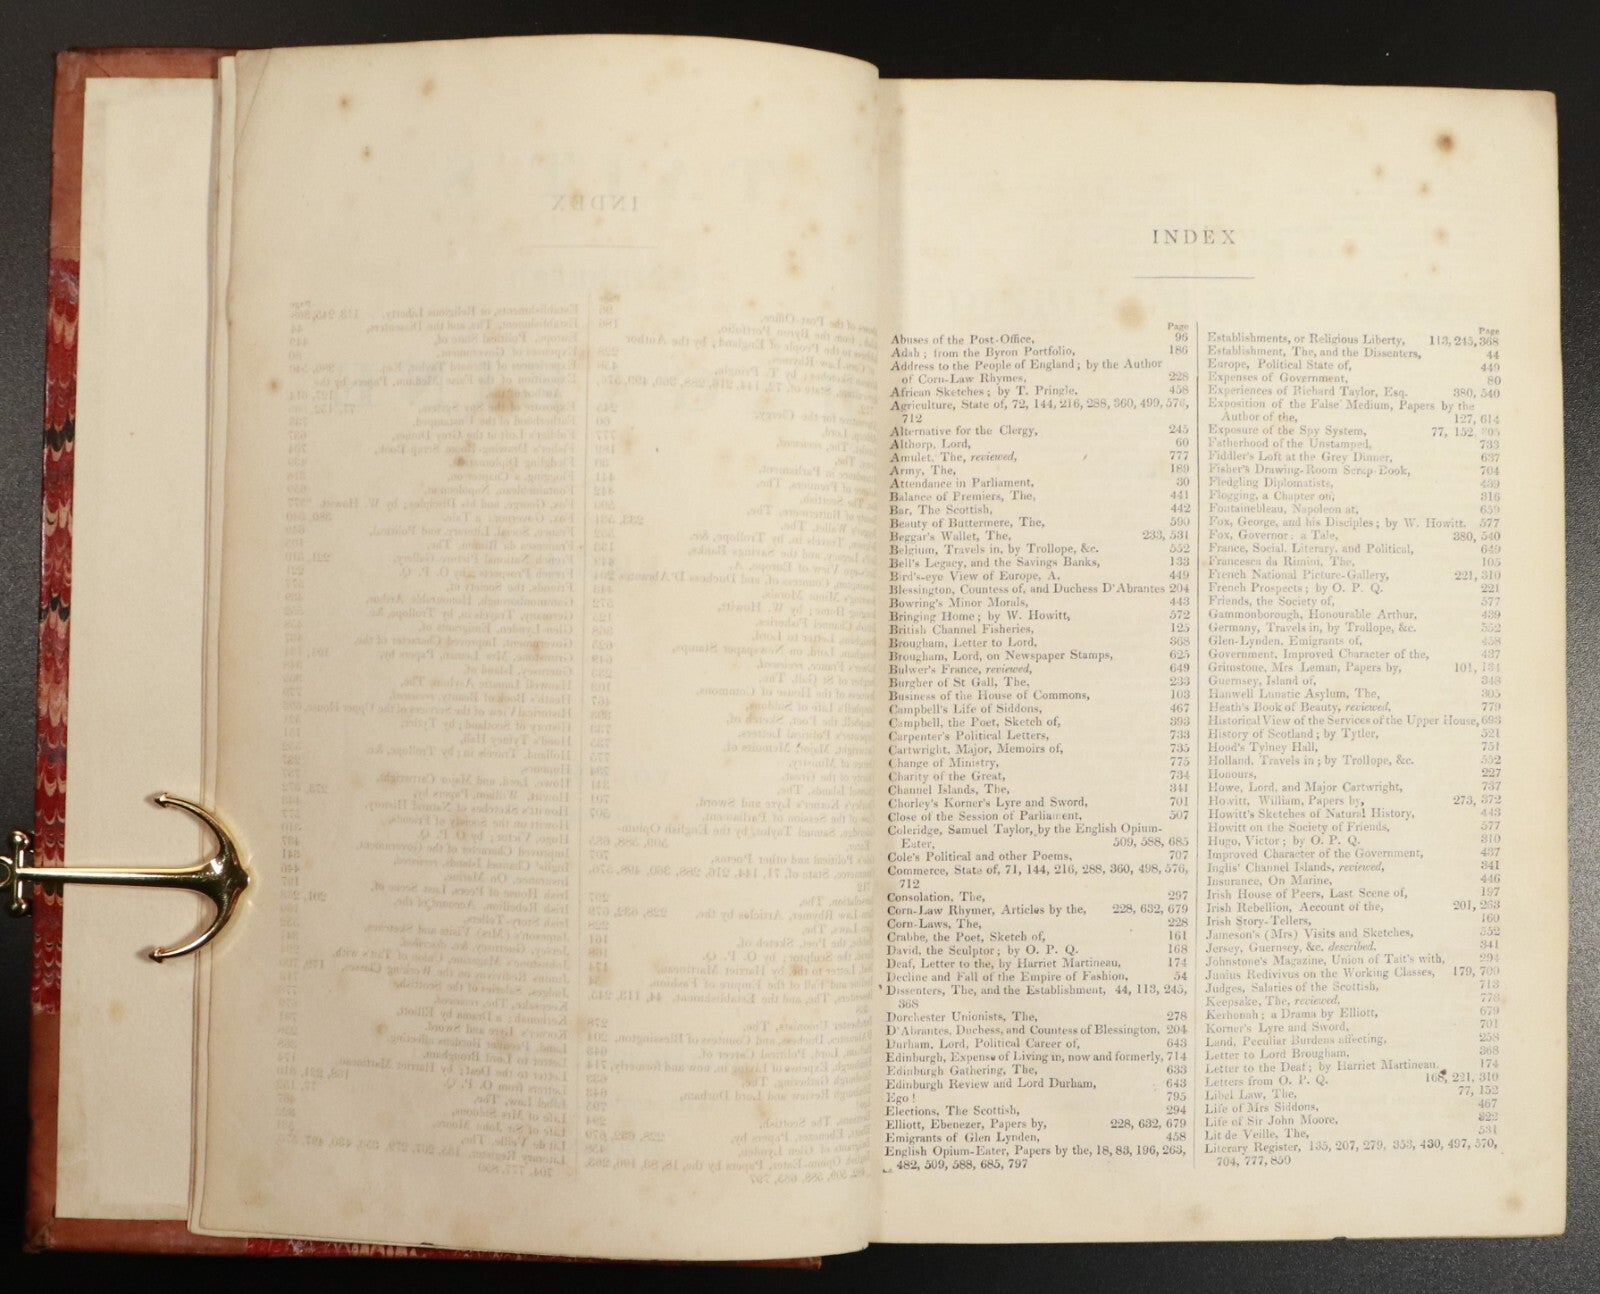 INDEX
Page
Abuses of the Post-Office, 96
Adah; from the Byron Portfolio, 186
Address to the People of England; by the Author
of Corn-Law Rhymes, 228
African Sketches; by T. Pringle, 458
Agriculture, State of, 72, 144, 216, 288, 360, 499, 576,
712
Alternative for the Clergy, 245
Althorp, Lord, 60
Amulet, The, reviewed, 777
Army, The, 189
Attendance in Parliament, 30
Balance of Premiers, The, 441
Bar, The Scottish, 442
Beauty of Buttermere, The, 590
Beggar's Wallet, The, 233, 531
Belgium, Travels in, by Trollope, &c. 552
Bell's Legacy, and the Savings Banks, 133
Bird's-eye View of Europe, A. 449
Blessington, Countess of, and Duchess D'Abrantes 204
Bowring's Minor Morals, 443
Bringing Home; by W. Howitt, 572
British Channel Fisheries, 125
Brougham, Letter to Lord, 368
Brougham, Lord, on Newspaper Stamps, 625
Bulwer's France, reviewed, 649
Burgher of St Gall, The, 233
Business of the House of Commons, 103
Campbell's Life of Siddons, 467
Campbell, the Poet, Sketch of, 393
Carpenter's Political Letters, 733
Cartwright, Major, Memoirs of, 735
Change of Ministry, 775
Charity of the Great, 734
Channel Islands, The, 341
Chorley's Korner's Lyre and Sword, 701
Close of the Session of Parliament, 507
Coleridge, Samuel Taylor, by the English Opium-
Eater, 509, 588, 685
Cole's Political and other Poems, 707
Commerce, State of, 71, 144, 216, 288, 360, 498, 576,
712
Consolation, The, 297
Corn-Law Rhymer, Articles by the, 228, 632, 679
Corn-Laws, The, 228
Crabbe, the Poet, Sketch of, 161
David, the Sculptor; by O. P. Q. 168
Deaf, Letter to the, by Harriet Martineau, 174
Decline and Fall of the Empire of Fashion, 54
Dissenters, The, and the Establishment, 44, 113, 245,
368
Dorchester Unionists, The, 278
D'Abrantes, Duchess, and Countess of Blessington, 204
Durham, Lord, Political Career of, 643
Edinburgh, Expense of Living in, now and formerly, 714
Edinburgh Gathering, The, 633
Edinburgh Review and Lord Durham, 643
Ego! 795
Elections, The Scottish, 294
Elliott, Ebenezer, Papers by, 228, 632, 679
Emigrants of Glen Lynden, 458
English Opium-Eater, Papers by the, 18, 83, 196, 263,
482, 509, 588, 685, 797
Page
Establishments, or Religious Liberty, 113, 245, 368
Establishment, The, and the Dissenters, 44
Europe, Political State of, 449
Expenses of Government, 80
Experiences of Richard Taylor, Esq. 380, 540
Exposition of the False Medium, Papers by the
Author of the, 127, 614
Exposure of the Spy System, 77, 152,
Fatherhood of the Unstamped, 733
Fiddler's Loft at the Grey Dinner, 637
Fisher's Drawing-Room Scrap-Book, 704
Fledgling Diplomatists, 439
Flogging, a Chapter on, 316
Fontainebleau, Napoleon at, 659
Fox, George, and his Disciples; by W. Howitt. 577
Fox, Governor: a Tale, 380, 540
France, Social, Literary, and Political, 649
Francesca da Rimini, The, 105
French National Picture-Gallery, 221, 310
French Prospects; by O. P. Q. 221
Friends, the Society of, 577
Gammonborough, Honourable Arthur, 439
Germany, Travels in, by Trollope, &c. 552
Glen-Lynden, Emigrants of, 458
Government, Improved Character of the, 437
Grimstone, Mrs Leman, Papers by, 101, 134
Guernsey, Island of, 348
Hanwell Lunatic Asylum, The, 305
Heath's Book of Beauty, reviewed, 779
Historical View of the Services of the Upper House, 693
History of Scotland; by Tytler, 521
Hood's Tylney Hall, 751
Holland, Travels in; by Trollope, &c. 552
Honours, 227
Howe, Lord, and Major Cartwright, 737
Howitt, William, Papers by, 273, 372
Howitt's Sketches of Natural History, 443
Howitt on the Society of Friends, 577
Hugo, Victor; by O. P. Q. 310
Improved Character of the Government, 437
Inglis' Channel Islands, reviewed, 341
Insurance, On Marine, 446
Irish House of Peers, Last Scene of, 197
Irish Rebellion, Account of the, 201, 263
Irish Story-Tellers, 160
Jameson's (Mrs) Visits and Sketches, 552
Jersey, Guernsey, &c. described, 341
Johnstone's Magazine, Union of Tait's with, 294
Junius Redivivus on the Working Classes, 179, 700
Judges, Salaries of the Scottish, 713
Keepsake, The, reviewed, 778
Kerhonah; a Drama by Elliott, 679
Korner's Lyre and Sword, 701
Land, Peculiar Burdens affecting, 258
Letter to Lord Brougham, 368
Letter to the Deaf; by Harriet Martineau, 174
Letters from O. P. Q. 168, 221, 310
Libel Law, The, 77, 152
Life of Mrs Siddons, 467
Life of Sir John Moore, 322
Lit de Veille, The, 531
Literary Register, 135, 207, 279, 353, 430, 497, 570,
704, 777, 850